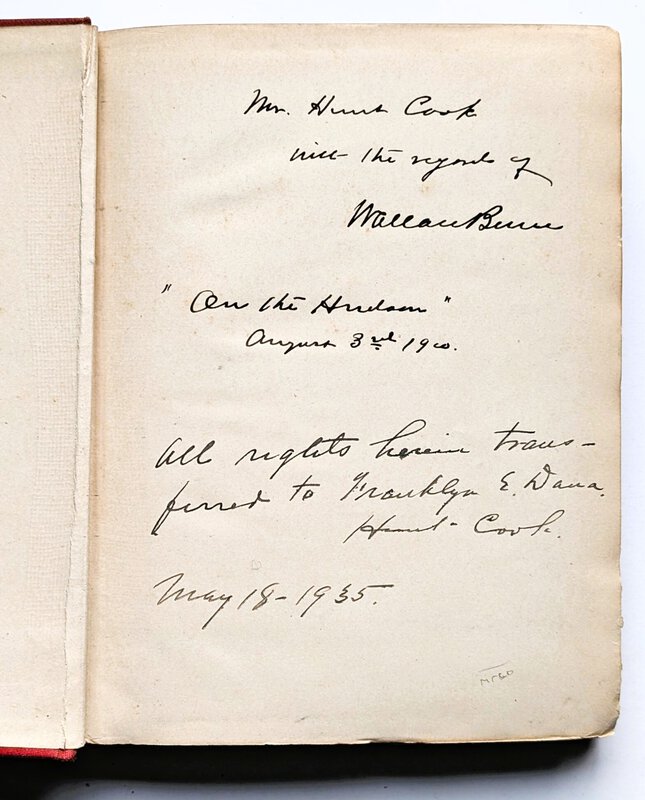 Mr. Hunt Cook
with the regards of
Wallace Bruce
"On the Hudson"
August 3rd 1900.
All rights herein trans-
ferred to Franklyn E. Dana.
Hunt Cook.
May 18-1935.